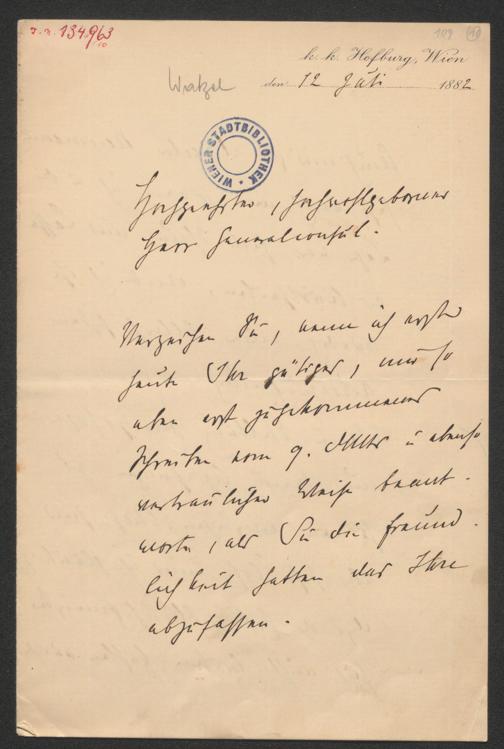 J. N. 134.963
k. k. Hofburg, Wien
den 12 Juli 1882
WIENER STADTBIBLIOTHEK
Hochgeehrter, hochwohlgeborner
Herr Generalconsul.
Verzeihen Sie, wenn ich erst
heute Ihr gütiges, mir so
eben erst zugekommenes
Schreiben vom 9. d. Mts in ebenso
vertraulicher Weise beant-
worte, als Sie die Freund-
lichkeit hatten das Ihre
abzufassen.